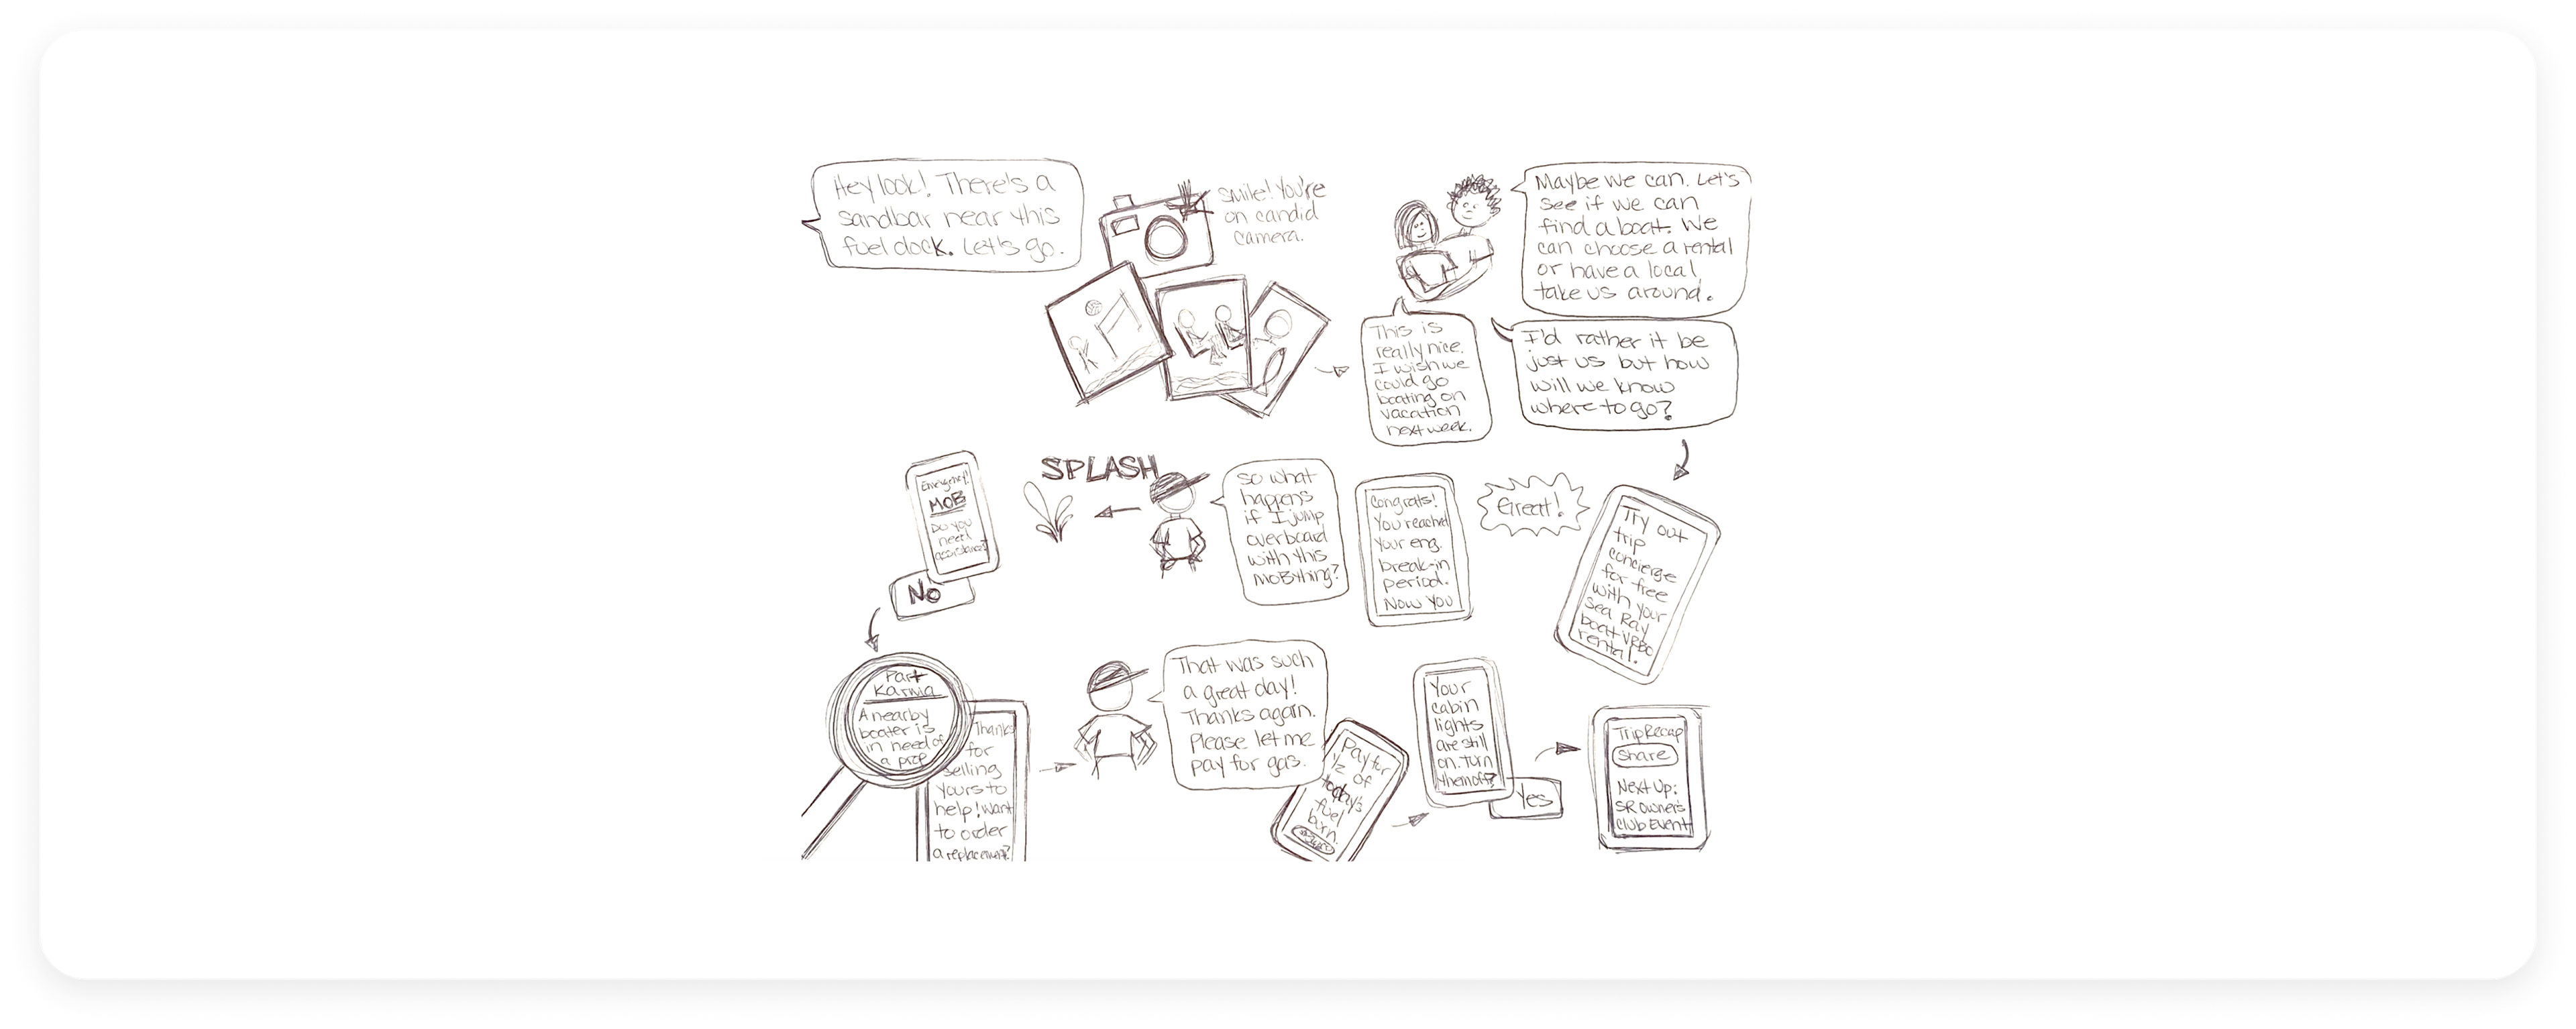 Hey look! There's a
sandbar near this
fuel dock. Let's go.
Smile! You're
on candid
camera.
Maybe we can. Let's
see if we can
find a boat. We
can choose a rental
or have a local
take us around.
This is
really nice.
I wish we
could go
boating on
vacation
next week.
I'd rather it be
just us but how
will we know
where to go?
Try out
trip
concierge
for free
with your
Sea Ray
boat VRBO
rental.
Great!
Congrats!
You reached
your eng.
break-in
period.
Now you
So what
happens
if I jump
overboard
with this
MOB thing?
SPLASH
Emergency!
MOB
Do you
need
assistance?
No
Part
Karma
A nearby
boater is
in need of
a prop
Thanks
for
selling
yours to
help! Want
to order
a replacement?
That was such
a great day!
Thanks again.
Please let me
pay for gas.
Pay for
1/2 of
today's
fuel
burn.
Your
cabin
lights
are still
on. Turn
them off?
Yes
Trip Recap
Share
Next Up:
SR owner's
club Event